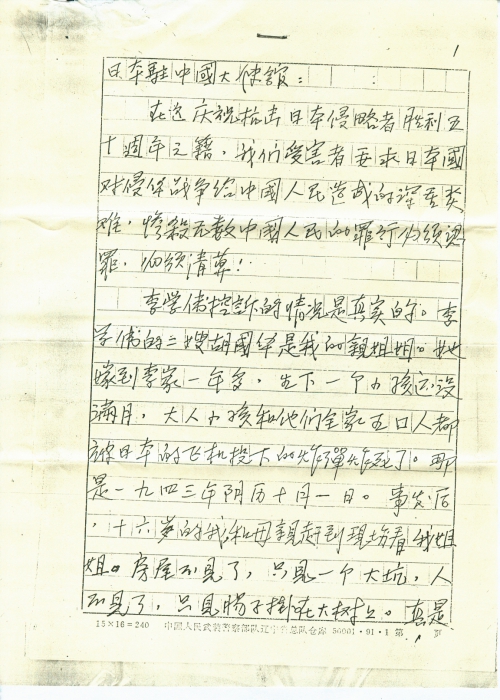 1
日本駐中國大使館：
在这庆祝抗击日本侵略者胜利五
十週年之籍，我们受害者要求日本國
对侵华战争给中國人民造成的深重灾
难，惨殺无数中國人民的罪行必须认
罪，必须清算！
李学伟控訴的情况是真实的。李
学伟的三嫂胡國华是我的親姐姐。她
嫁到李家一年多，生下一个小孩还没
满月，大人小孩和他们全家五口人都
被日本的飞机投下的炸彈炸死了。那
是一九四三年阴历十月一日。事发后
，十六岁的我和母親赶到现场看我姐
姐。房屋不見了，只見一个大坑，人
不見了，只見腸子掛在大树上。真是
15×16=240 中国人民武装警察部队辽宁省总队仓库 56001·91·1 第 页